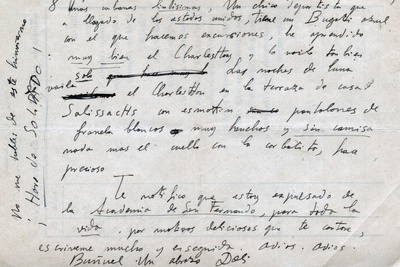 unas cubanas Un chico deportista que
a llegado de los estados unidos, tiene un Bugatti azul
con el que hacemos excursiones, he aprendido
muy bien el Charlesthon, y lo vaila tonbien
solo
vaila el Charleston en la terraza de casa
las noches de luna
Salissachs con esmokin pantalones de
franela blancos muy hanchos y sin camisa
nada mas el cuello con la corbatita, hace
precioso
Te notifico que estoy expulsado de
la Academia de San Fernando, para toda la
vida. por motivos deliciosos que te contare,
escriveme mucho, y enseguida. adios. adios.
Buñuel Un abrazo Dali
No me hables de este
¡Hora do